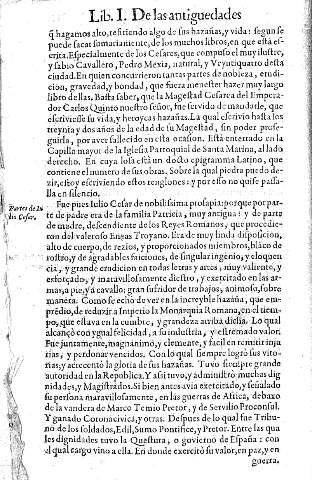 Lib. I. De las antiguedades
q̃ hagamos alto, refiriẽdo algo de sus hazañas, y vida: segun se
puede sacar sumariamente, de los muchos libros, en que està es-
crita. Especialmente de los Cesares, que compuso el muy ilustre,
y sabio Cavallero, Pedro Mexia, natural, y Veyntiquatro desta
ciudad. En quien concurrieron tantas partes de nobleza, erudi-
cion, gravedad, y bondad, que fuera menester hazer muy largo
libro dellas. Basta saber, que la Magestad Cesarea del Empera-
dor Carlos Quinto nuestro señor, fue servido de mandarle, que
escriviesse su vida, y heroycas hazañas. La qual escrivio hasta los
treynta y dos años de la edad de su Magestad, sin poder prose-
guirla, por aver fallecido en esta ocasion. Està enterrado en la
Capilla mayor de la Iglesia Parroquial de Santa Marina, al lado
derecho. En cuya losa està un docto epigramma Latino, que
contiene el numero de sus obras. Sobre la qual piedra puedo de-
zir, estoy escriviendo estos renglones: y por esso no quise passa-
lla en silencio.
Fue pues Iulio Cesar de nobilissima prosapia: porque por par-
te de padre era de la familia Patricia, muy antigua: y de parte
de madre, descendiente de los Reyes Romanos, que procedie-
ron del valeroso Eneas Troyano. Era de muy linda disposicion,
alto de cuerpo, de rezios, y proporcionados miembros, blãco de
rostro, y de agradables faiciones, de singular ingenio, y eloquen
cia, y grande erudicion en todas letras y artes, muy valiente, y
esforçado, y maravillosamente diestro, y exercitado en las ar-
mas, a pie, y a cavallo: gran sufridor de trabajos, animoso, sobre
manera. Como se echo de ver en la increyble hazaña, que em-
prẽdio, de reduzir a Imperio la Monarquia Romana, en el tiem-
po, que estava en la cumbre, y grandeza arriba dicha. Lo qual
alcançò con ygual felicidad, a su industria, y estremado valor.
Fue juntamente, magnanimo, y clemente, y facil en remitir inju
rias, y perdonar vencidos. Con lo qual siempre logrò sus vito-
rias, y acrecentò la gloria de sus hazañas. Tuvo siempre grande
autoridad en la Republica. Y assi tuvo, y administrò muchas dig
nidades, y Magistrados. Si bien antes avia exercitado, y señalado
su persona maravillosamente, en las guerras de Africa, debaxo
de la vandera de Marco Temio Pretor, y de Servilio Proconsul.
Y ganado Corona civica, y otras. Despues de lo qual fue Tribu-
no de los soldados, Edil, Sumo Pontifice, y Pretor. Entre las qua
les dignidades tuvo la Questura, o govierno de España: con
el qual cargo vino a ella. En donde exercitò su valor, en paz, y en
guerra.
Partes de Iu
lio Cesar.